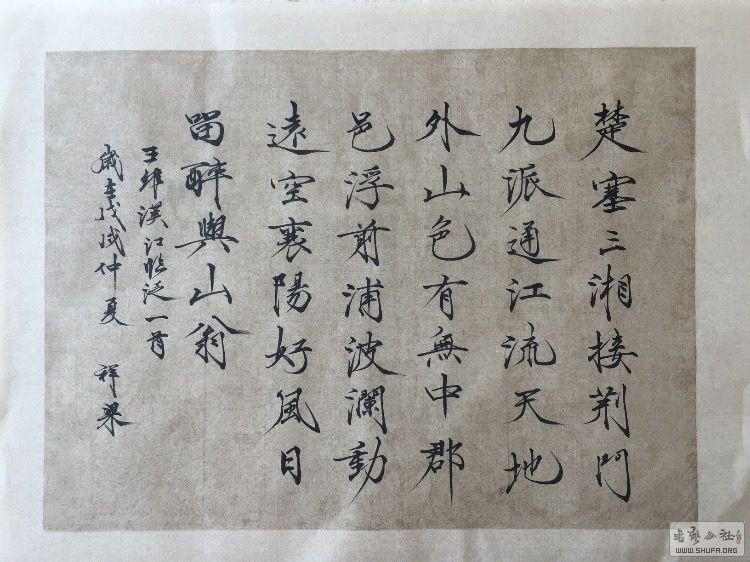 楚塞三湘接荆門
九派通江流天地
外山色有無中郡
邑浮前浦波瀾動
遠空襄陽好風日
留醉與山翁
王維漢江临泛一首
歲在戊戌仲夏 祥梁
书艺公社
WWW.SHUFA.ORG